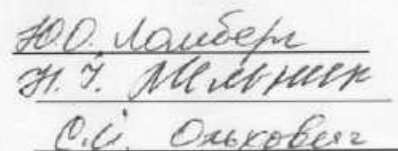 Ю.О. Ламберг
Н. І. Мельник
С.Й. Олькович